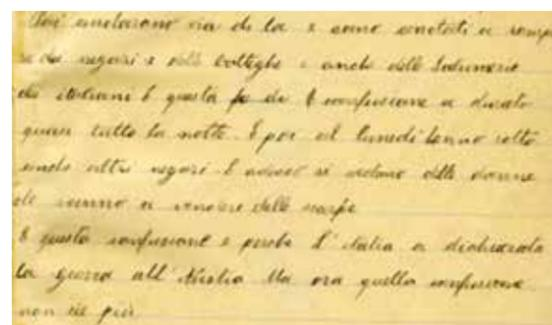 Poi andarano via di la e sono andati a rompe
re dei negozi e delle botteghe e anche delle Salumerie
dei italiani E questa fe di E confusione a durato
quasi tutta la notte. E poi al lunedi hanno rotto
anche altri negozi. E adesso si vedono delle donne
che vanno a vendere delle scarpe
E questa confusione e perche l'italia a dichiarato
la guerra all'Austria Ma ora quella confusione
non cie più